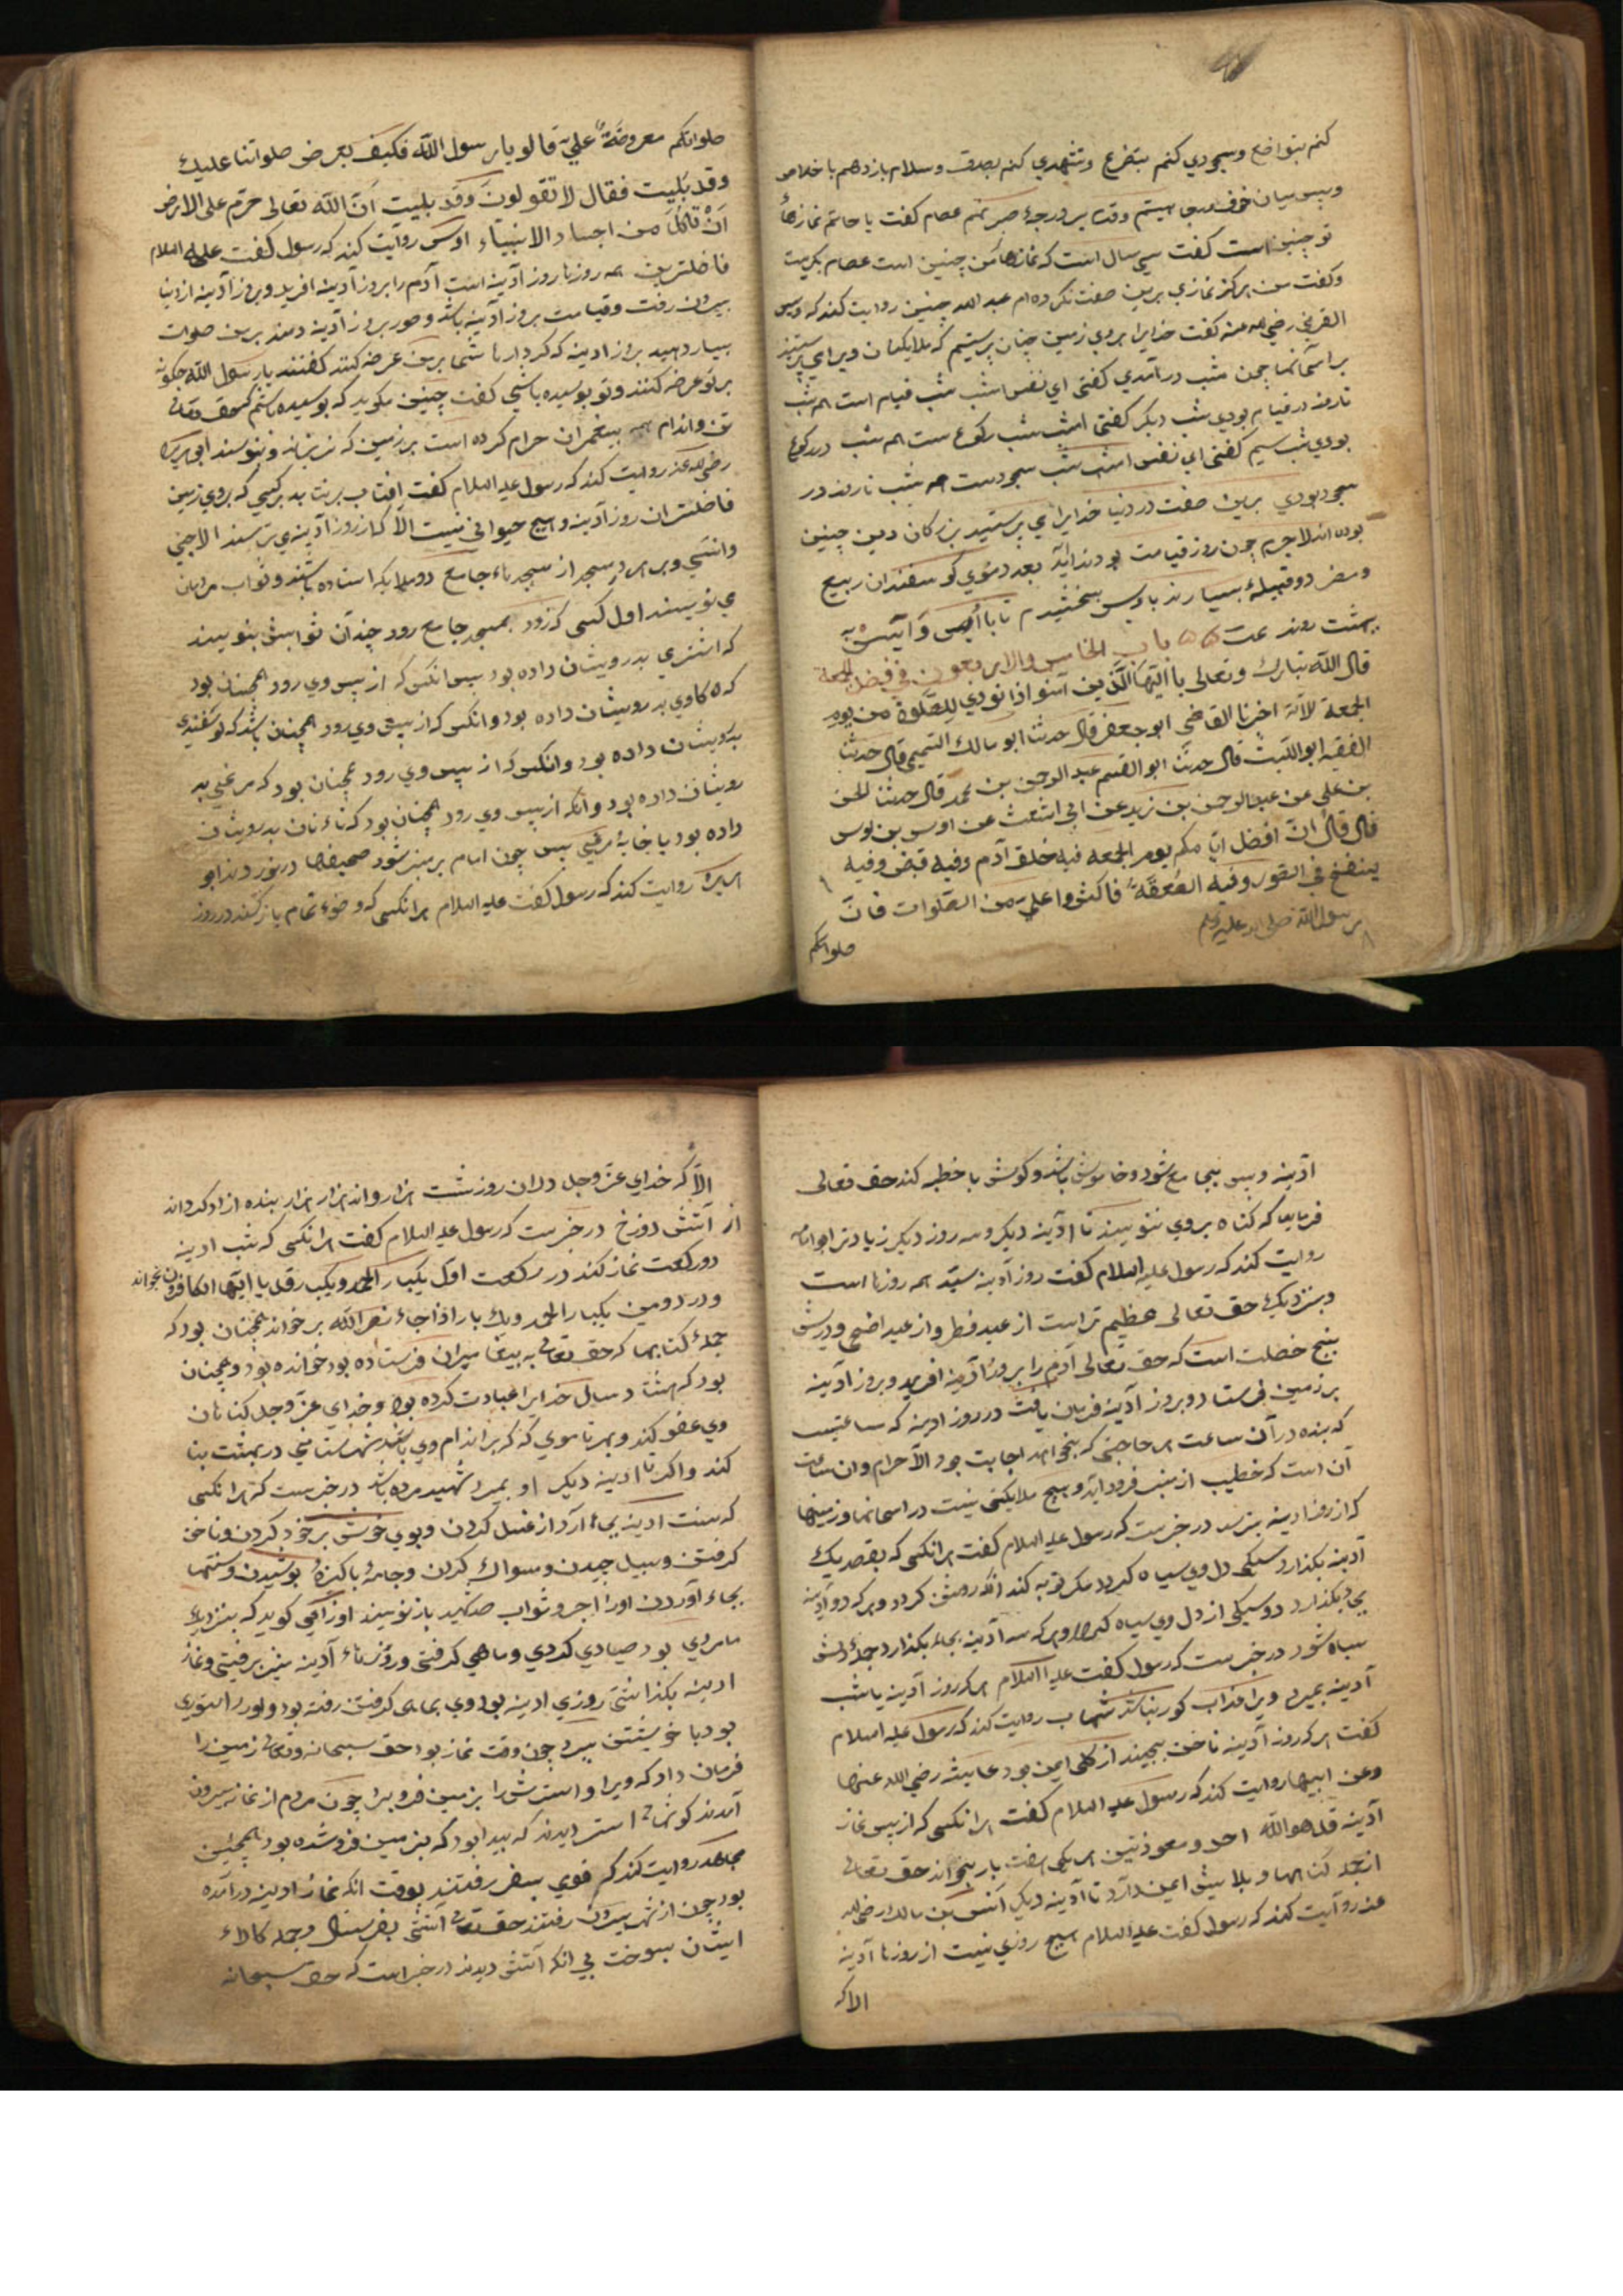 کنم بتواضع وسجودي کنم بتضرع وتشهدي کنم بصدق وسلام باز دهم باخلاص
وپس میان خوف ورجا بیستم وقدم بر درجهٔ صبر نهم عصام کفت یا حاتم نمازهاء
تو چنین است کفت سي سال است که نمازهاء من چنین است عصام بکریست
وکفت من هرکز نمازي برین صفت نکرده ام عبد الله چنین روایت کند که اویس
القرني رضي الله عنه کفت خدایرا بروي زمین چنان پرستیم که ملایکهان ویرا مي پرستیند
بر آسمانها چون شب درآمدي کفتي اي نفس امشب شب قیام است همه شب
تا روز در قیام بودي شب دیکر کفتي امشب شب رکوع ست همه شب در رکوع
بودي شب سیم کفتي اي نفس امشب شب سجودست همه شب تا روز در
سجود بودي برین صفت در دنیا خدایرا مي پرستید بزرکان دین چنین
بوده اند لاجرم چون روز قیامت بود ندا آید بعدد موي کوسفندان ربیع
ومضر دو قبیلهٔ بسیارند باویس بخشیدم تا با اویس وآنیس به
بهشت روند عت باب الخامس والاربعون في فضل الجمعة
قال الله تبارک وتعالى یا ایها الذین آمنوا اذا نودي للصلوة من یوم
الجمعة الآیة اخبرنا القاضي ابو جعفر قال حدثنا ابو مالك التمیمي قال حدثنا
الفقیه ابو اللیث قال حدثنا ابو القسم عبد الرحمن بن محمد قال حدثنا الحسن
بن علي عن عبد الرحمن بن زید عن ابي اشعث عن اوس بن اوس
قال قال ان افضل ایامکم یوم الجمعه فیه خلق آدم وفیه قبض وفیه
ینفخ في الصور وفیه الصعقة فاکثروا علي من الصلوات فان
رسول الله صلى الله علیه وسلم
صلواتکم
صلواتکم معروضة علي قالو یا رسول الله فکیف یعرض صلواتنا علیك
وقد بلیت فقال لا تقولون وقد بلیت ان الله تعالى حرم على الارض
ان تاکل من اجساد الانبیاء اوس روایت کند که رسول کفت علیه السلام
فاضلترین همه روزها روز آدینه است آدم را بروز آدینه افرید وبروز آدینه از دنیا
بیرون رفت وقیامت بروز آدینه باشد وصور بروز آدینه دمند بر من صلوات
بسیار دهید بروز ادینه که کردارهاء شما بر من عرضه کنند کفتند یا رسول الله چکونه
بر تو عرضه کنند وتو پوسیده باشي کفت چنین مکوید که پوسیده باشم که حق تعالى
تن واندام همه پیغمبران حرام کرده است بر زمین که نریزاند ونپوسند ابي هریره
رضي الله عنه روایت کند که رسول علیه السلام کفت افتاب برنتابد بر کسي که بروي زمین
فاضلتر از روز آدینه وهیچ حیواني نیست الا که از روز آدینه مي ترسند الا جني
وانسي وبر هر در مسجد از مسجدهاء جامع دو ملایکه استاده باشند وثواب مردمان
مي نویسند اول کسي که زود بمسجد جامع رود چندان ثوابش بنویسند
که اشتري بدرویشان داده بود پس انکس که از پس وي رود همچنان بود
که کاوي بدرویشان داده بود وانکس که از پس وي رود همچنان باشد که کوسفندي
بدرویشان داده بود وانکس که از پس وي رود همچنان بود که مرغي بد
رویشان داده بود وانکه از پس وي رود همچنان بود که تاء نان بدرویشان
داده بود یا خایهٔ مرغي پس چون امام بر منبر شود صحیفها درنوردند ابو
هریره روایت کند که رسول کفت علیه السلام هر انکسي که وضوء تمام باز کند در روز
آدینه وپس بجامع شود وخاموش باشد وکوش با خطبه کند حق تعالى
فرماید که کناه بروي ننویسند تا آدینه دیکر وسه روز دیکر زیادتر ابو امامه
روایت کند که رسول علیه السلام کفت روز آدینه سید همه روزها است
وبنزدیك حق تعالى عظیم تر است از عید فطر واز عید اضحى ودرش
پنج خصلت است که حق تعالى آدم را بروز آدینه افرید وبروز آدینه
بر زمین فرستاد وبروز آدینه فرمان یافت در روز ادینه که ساعتیست
که بنده در آن ساعت هر حاجتي که بخواهد اجابت بود الا حرام وان ساعت
آن است که خطیب از منبر فرود آید وهیچ ملایکتي نیست در اسمانها وزمینها
که از روز ادینه بترسد در خبرست که رسول علیه السلام کفت هر انکسي که بقصد یك
آدینه بکذارد سیکي دل وي سیاه کردد مکر توبه کند انکه روشن کردد وهر که دو آدینه
بکذارد دو سیکي از دل وي سیاه کردد وهر که سه آدینه بجاء بکذارد جمله دلش
سیاه شود در خبرست که رسول کفت علیه السلام هر که روز آدینه یا شب
آدینه بمیرد ویرا عذاب کور نباشد شهاب روایت کند که رسول علیه السلام
کفت هر که روز آدینه ناخن بچیند از کلي ایمن بود عایشه رضي الله عنها
وعن ابیها روایت کند که رسول علیه السلام کفت هر انکسي که از پس نماز
آدینه قل هو الله احد ومعوذتین هر یکي هفت بار بخواند حق تعالى
از جمله کناهها وبلاییش ایمن دارد تا آدینه دیکر انس بن مالك رضي الله
عنه روایت کند که رسول کفت علیه السلام هیچ روزي نیست از روزها آدینه
الا که
الا که خداي عز وجل در ان روز شست هزار واند هزار هزار بنده ازاد کرداند
از آتش دوزخ در خبرست که رسول علیه السلام کفت هر انکسي که شب ادینه
دو رکعت نماز کند در رکعت اول یکبار الحمد ویکبار قل یا ایها الکافرون بخواند
ودر دومین یکبار الحمد ویك بار اذا جاء نصر الله برخواند همچنان بود که
جملهٔ کتابها که حق تعالى به پیغامبران فرستاده بود خوانده بود وهمچنان
بود که هشتاد سال خدایرا عبادت کرده بود وخداي عز وجل کناهان
وي عفو کند وبهر تاء موي که بر اندام وي باشد شهرستاني در بهشت بنا
کند واکر تا ادینه دیکر او بمیرد شهید مرده باشد در خبرست که هر انکسي
که سنت ادینه بجاء آرد از غسل کردن وبوي خوش بر خود کردن وناخن
کرفتن وسبیل چیدن ومسواك کردن وجامهٔ پاکیزه پوشیدن وسنتها
بجاء آوردن اورا اجر وثواب صد شهید باز نویسند اوزاعي کوید که بنزدیك
ما مردي بود صیادي کردي وماهي کرفتي وروزهاء آدینه نیز برفتي ونماز
ادینه بکذاشتي روزي ادینه بود وي بماهي کرفتن رفته بود واورا استوري
بود با خویشتن ببرد چون وقت نماز بود حق سبحانه وتعالى زمین را
فرمان داد که ویرا واسترش را بزمین فرو برد چون مردم از نماز بیرون
آمدند کوشهاء استر دیدند که پیدا بود که بزمین فرو شده بود همچنین
مجاهد روایت کند که قومي بسفر رفتند بوقت انکه نماز ادینه درآمده
بود چون از شهر بیرون رفتند حق تعالى آتشي بفرستاد وجمله کالاء
ایشان بسوخت بي انکه آتش دیدند در خبر است که حق سبحانه